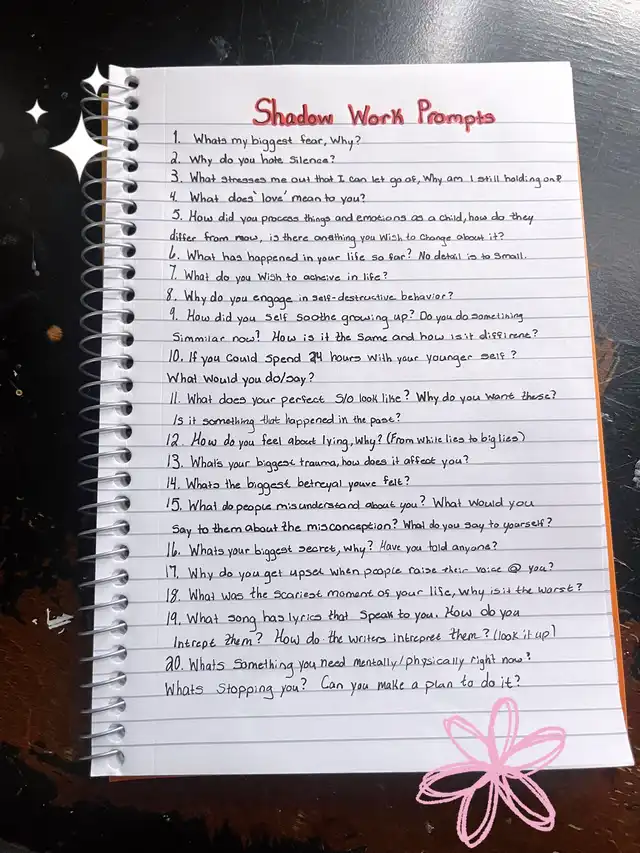 Shadow Work Prompts
1. Whats my biggest fear, Why?
2. Why do you hate silence?
3. What stresses me out that I can let go of, Why am I still holding on?
4. What does 'love' mean to you?
5. How did you process things and emotions as a child, how do they
differ from now, is there anything you wish to change about it?
6. What has happened in your life so far? No detail is to small.
7. What do you wish to acheive in life?
8. Why do you engage in self-destructive behavior?
9. How did you self soothe growing up? Do you do something
Simmilar now? How is it the same and how is it diffirene?
10. If you could spend 24 hours with your younger self?
What would you do/say?
11. What does your perfect s/o look like? Why do you want these?
Is it something that happened in the past?
12. How do you feel about lying, Why? (From white lies to big lies)
13. Whats your biggest trauma, how does it affect you?
14. Whats the biggest betreyal youve felt?
15. What do people misunderstand about you? What would you
say to them about the misconception? What do you say to yourself?
16. Whats your biggest secret, why? Have you told anyone?
17. Why do you get upset when people raise their voice @ you?
18. What was the scariest moment of your life, Why is it the worst?
19. What song has lyrics that speak to you. How do you
Intrept them? How do the writers intrepret them? (look it up)
20. Whats something you need mentally/physically right now?
Whats stopping you? Can you make a plan to do it?